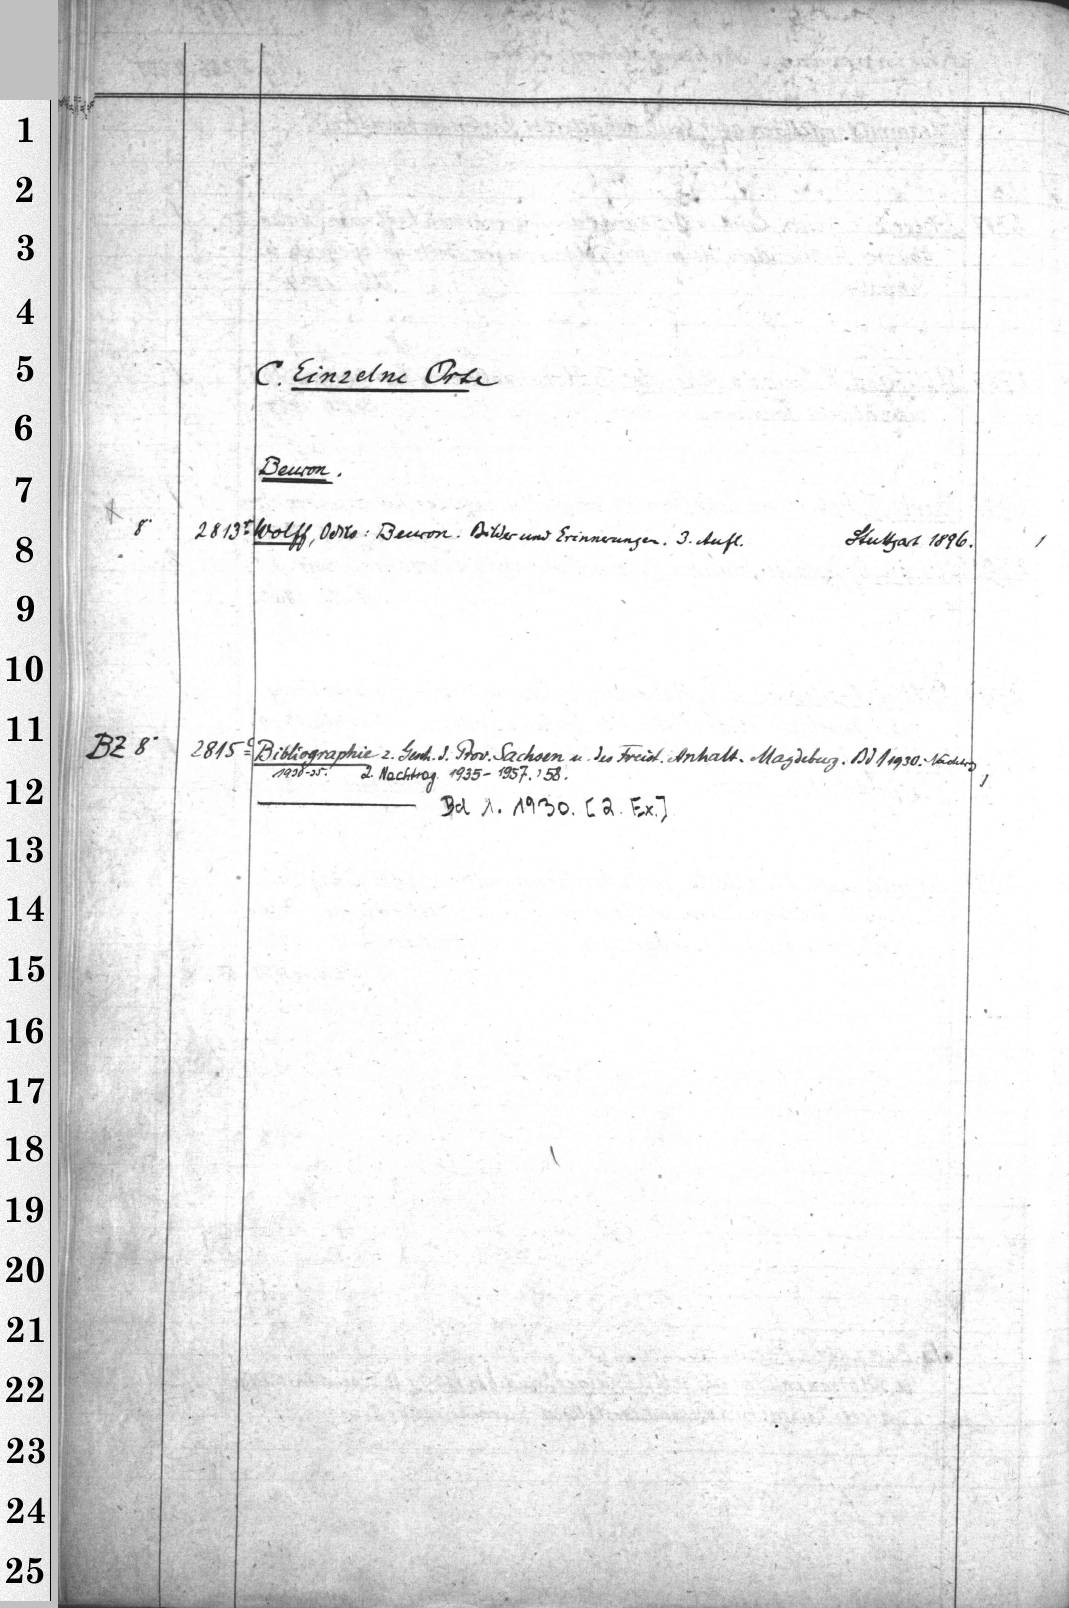 1
2
3
4
C. Einzelne Orte
5
6
Beuron.
7
8° 2813r Wolff, Odilo: Beuron. Bilder und Erinnerungen. 3. Aufl. Stuttgart 1896.
8
9
10
11
BZ 8° 2815c Bibliographie z. Gesch. d. Prov. Sachsen u. des Freist. Anhalt. Magdeburg. Bd 1 1930. - Nachtrag
1930-35. 2. Nachtrag 1935-1957. '58.
12
Bd 1. 1930. [2. Ex.]
13
14
15
16
17
18
19
20
21
22
23
24
25